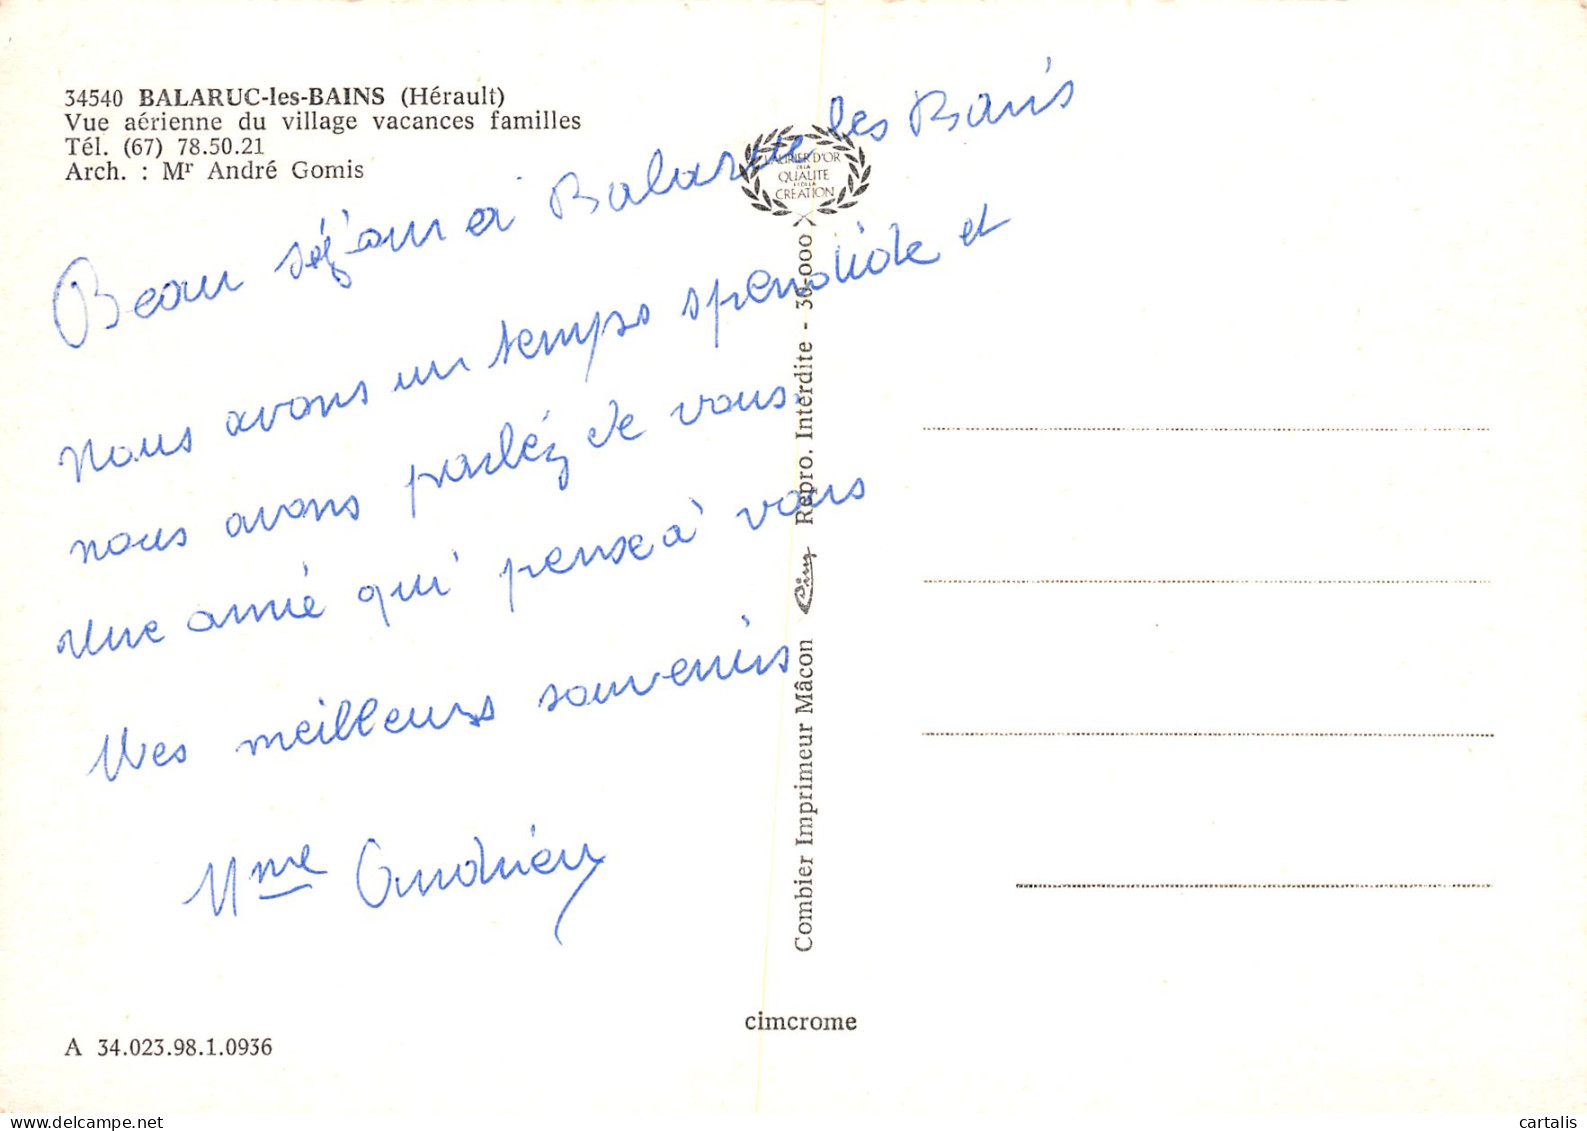 34540 BALARUC-les-BAINS (Hérault)
Vue aérienne du village vacances familles
Tél. (67) 78.50.21
Arch. : Mr André Gomis
Beau séjour à Balaruc les Bains
nous avons un temps spendide et
nous avons parléz de vous.
une amie qui pense à vous
Mes meilleurs souvenirs
Mme Andrieu
LAURIER D'OR
DE LA
QUALITE
ET DE LA
CREATION
Combier Imprimeur Mâcon Cim Repro. Interdite - 30-000
cimcrome
A 34.023.98.1.0936
cartalis